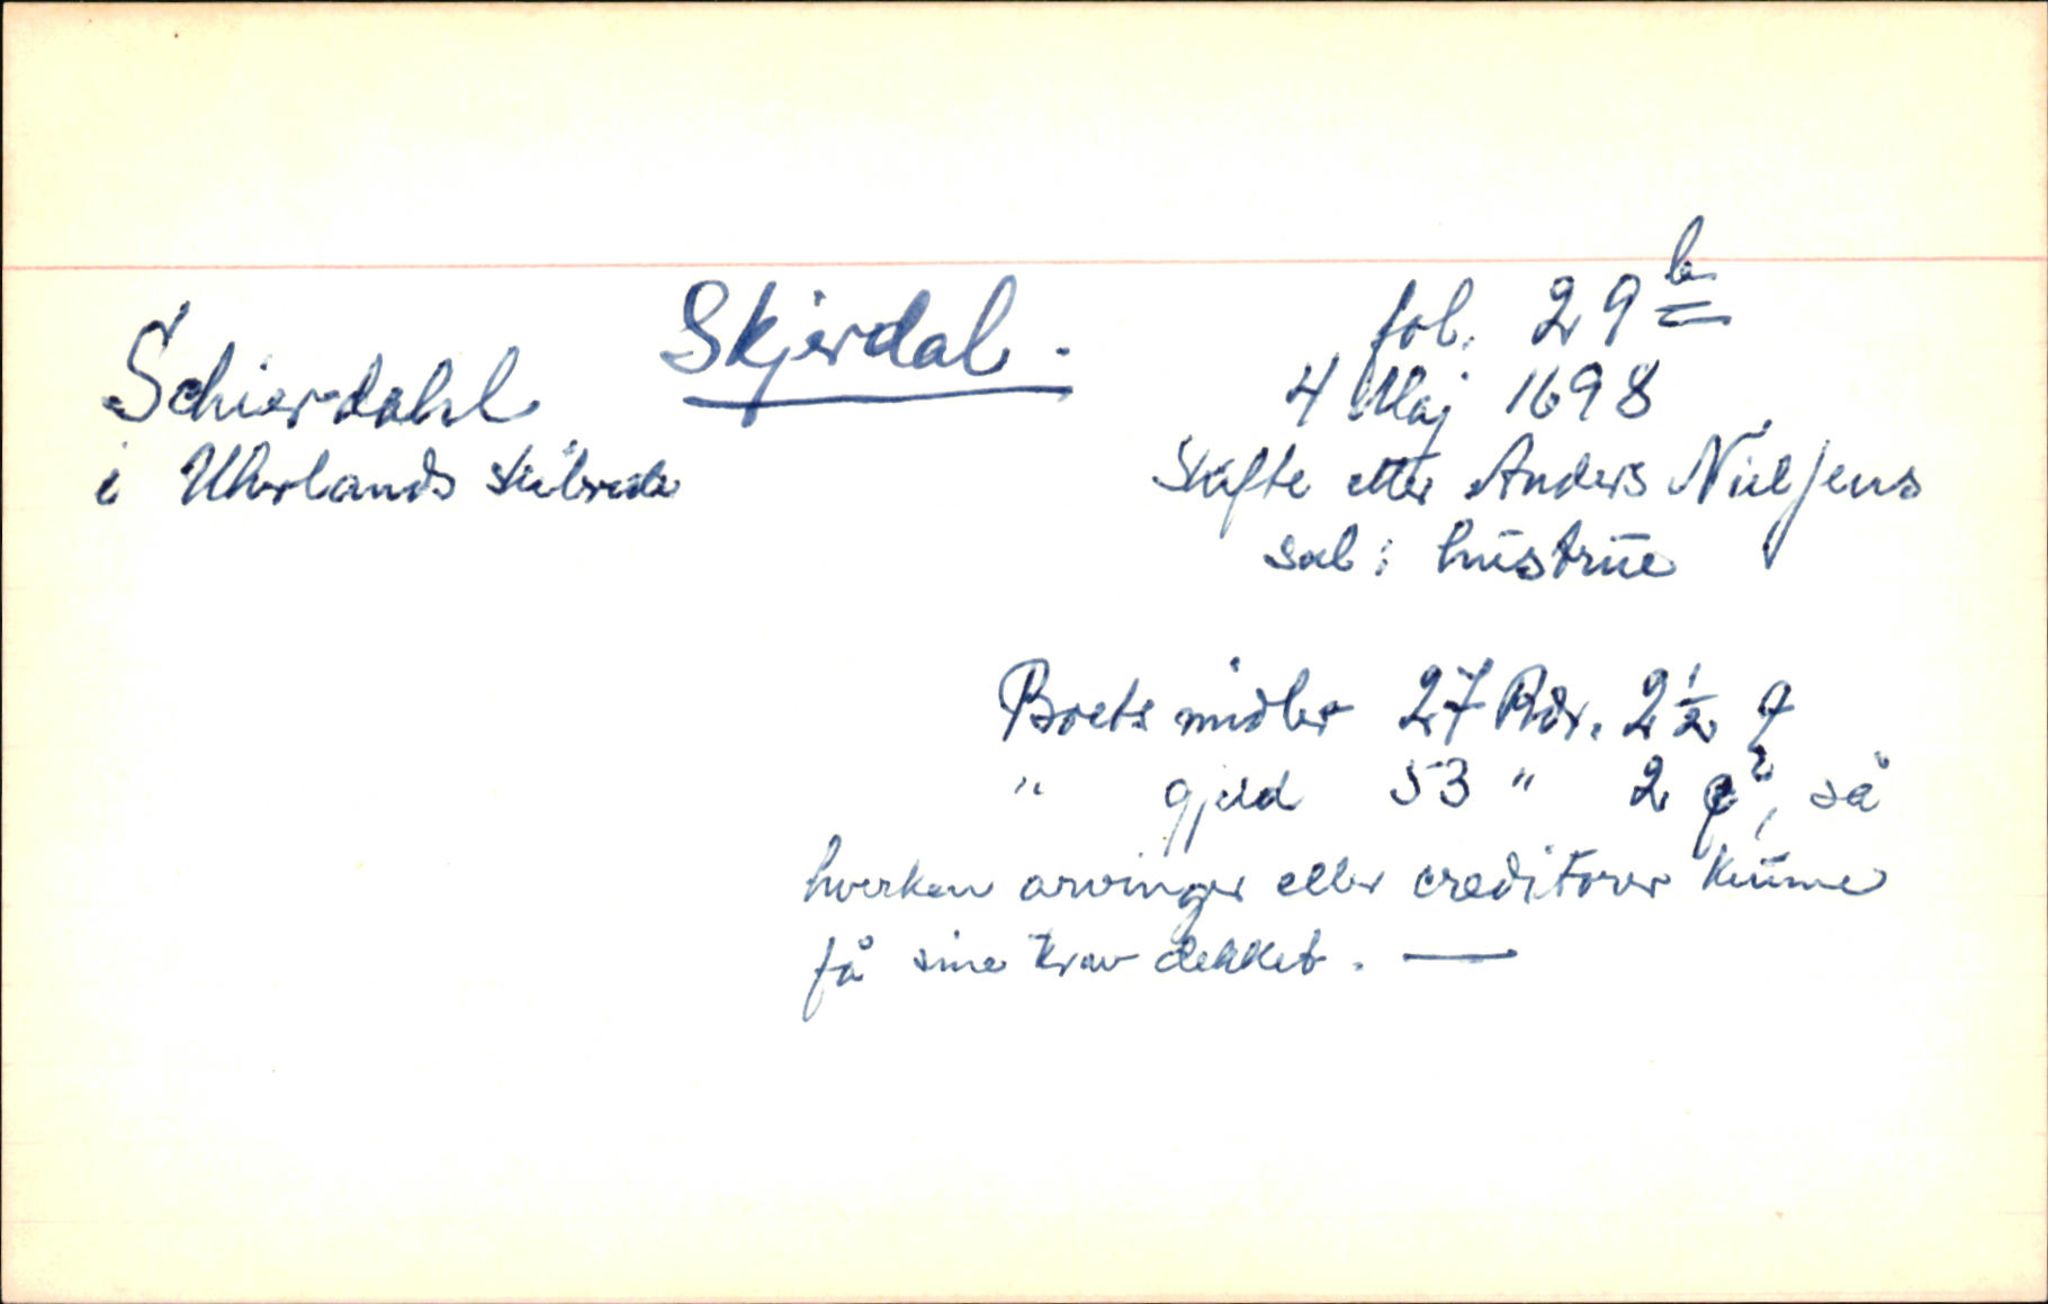 Skjerdal.
fol. 29 b
Schierdahl
i Uhrlands skibrede
4 Maj 1698
Skifte etter Anders Nielsens
sal: hustrue
Boets midler 27 Rdr. 2 ½
" gjeld 53 " 2 , så
hverken arvinger eller creditorer kunne
få sine krav dekket. —